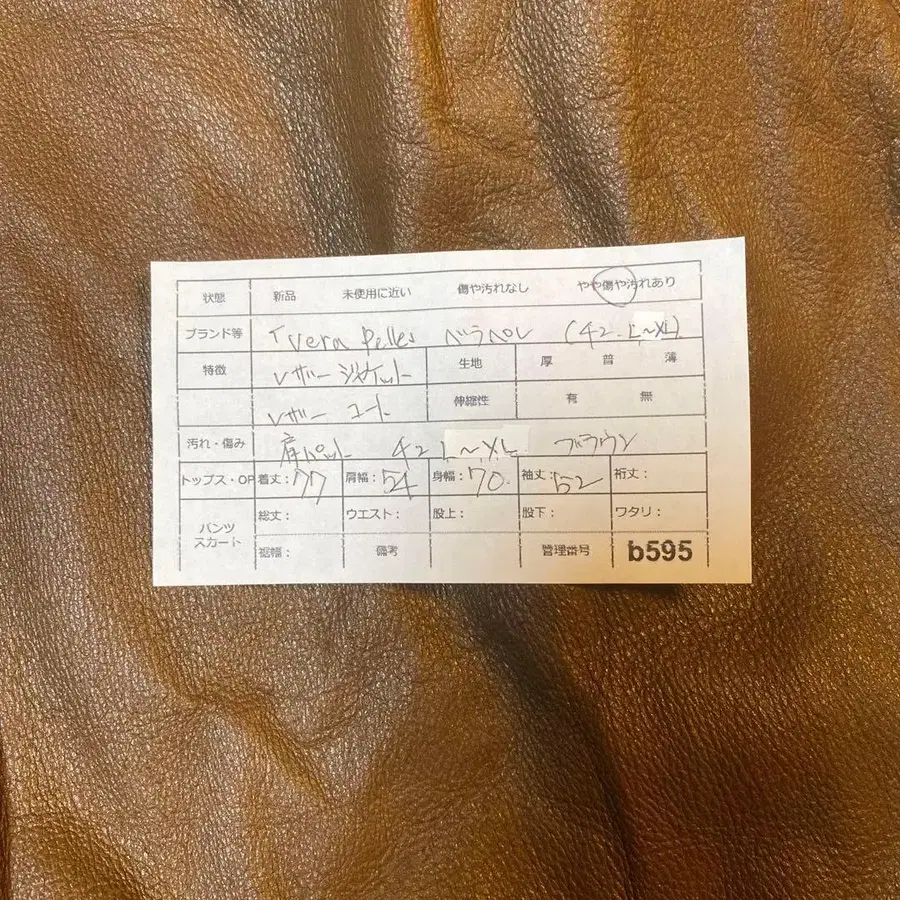 状態 新品 未使用に近い 傷や汚れなし やや傷や汚れあり
ブランド等 Vera Pelles ベラペレ (42. L~XL)
特徴 レザージャケット 生地 厚 普 薄
レザーコート 伸縮性 有 無
汚れ・傷み 肩パット 42 L~XL ブラウン
トップス・OP 着丈:77 肩幅:54 身幅:70. 袖丈:52 裄丈:
パンツ スカート 総丈: ウエスト: 股上: 股下: ワタリ:
裾幅: 備考 管理番号 b595